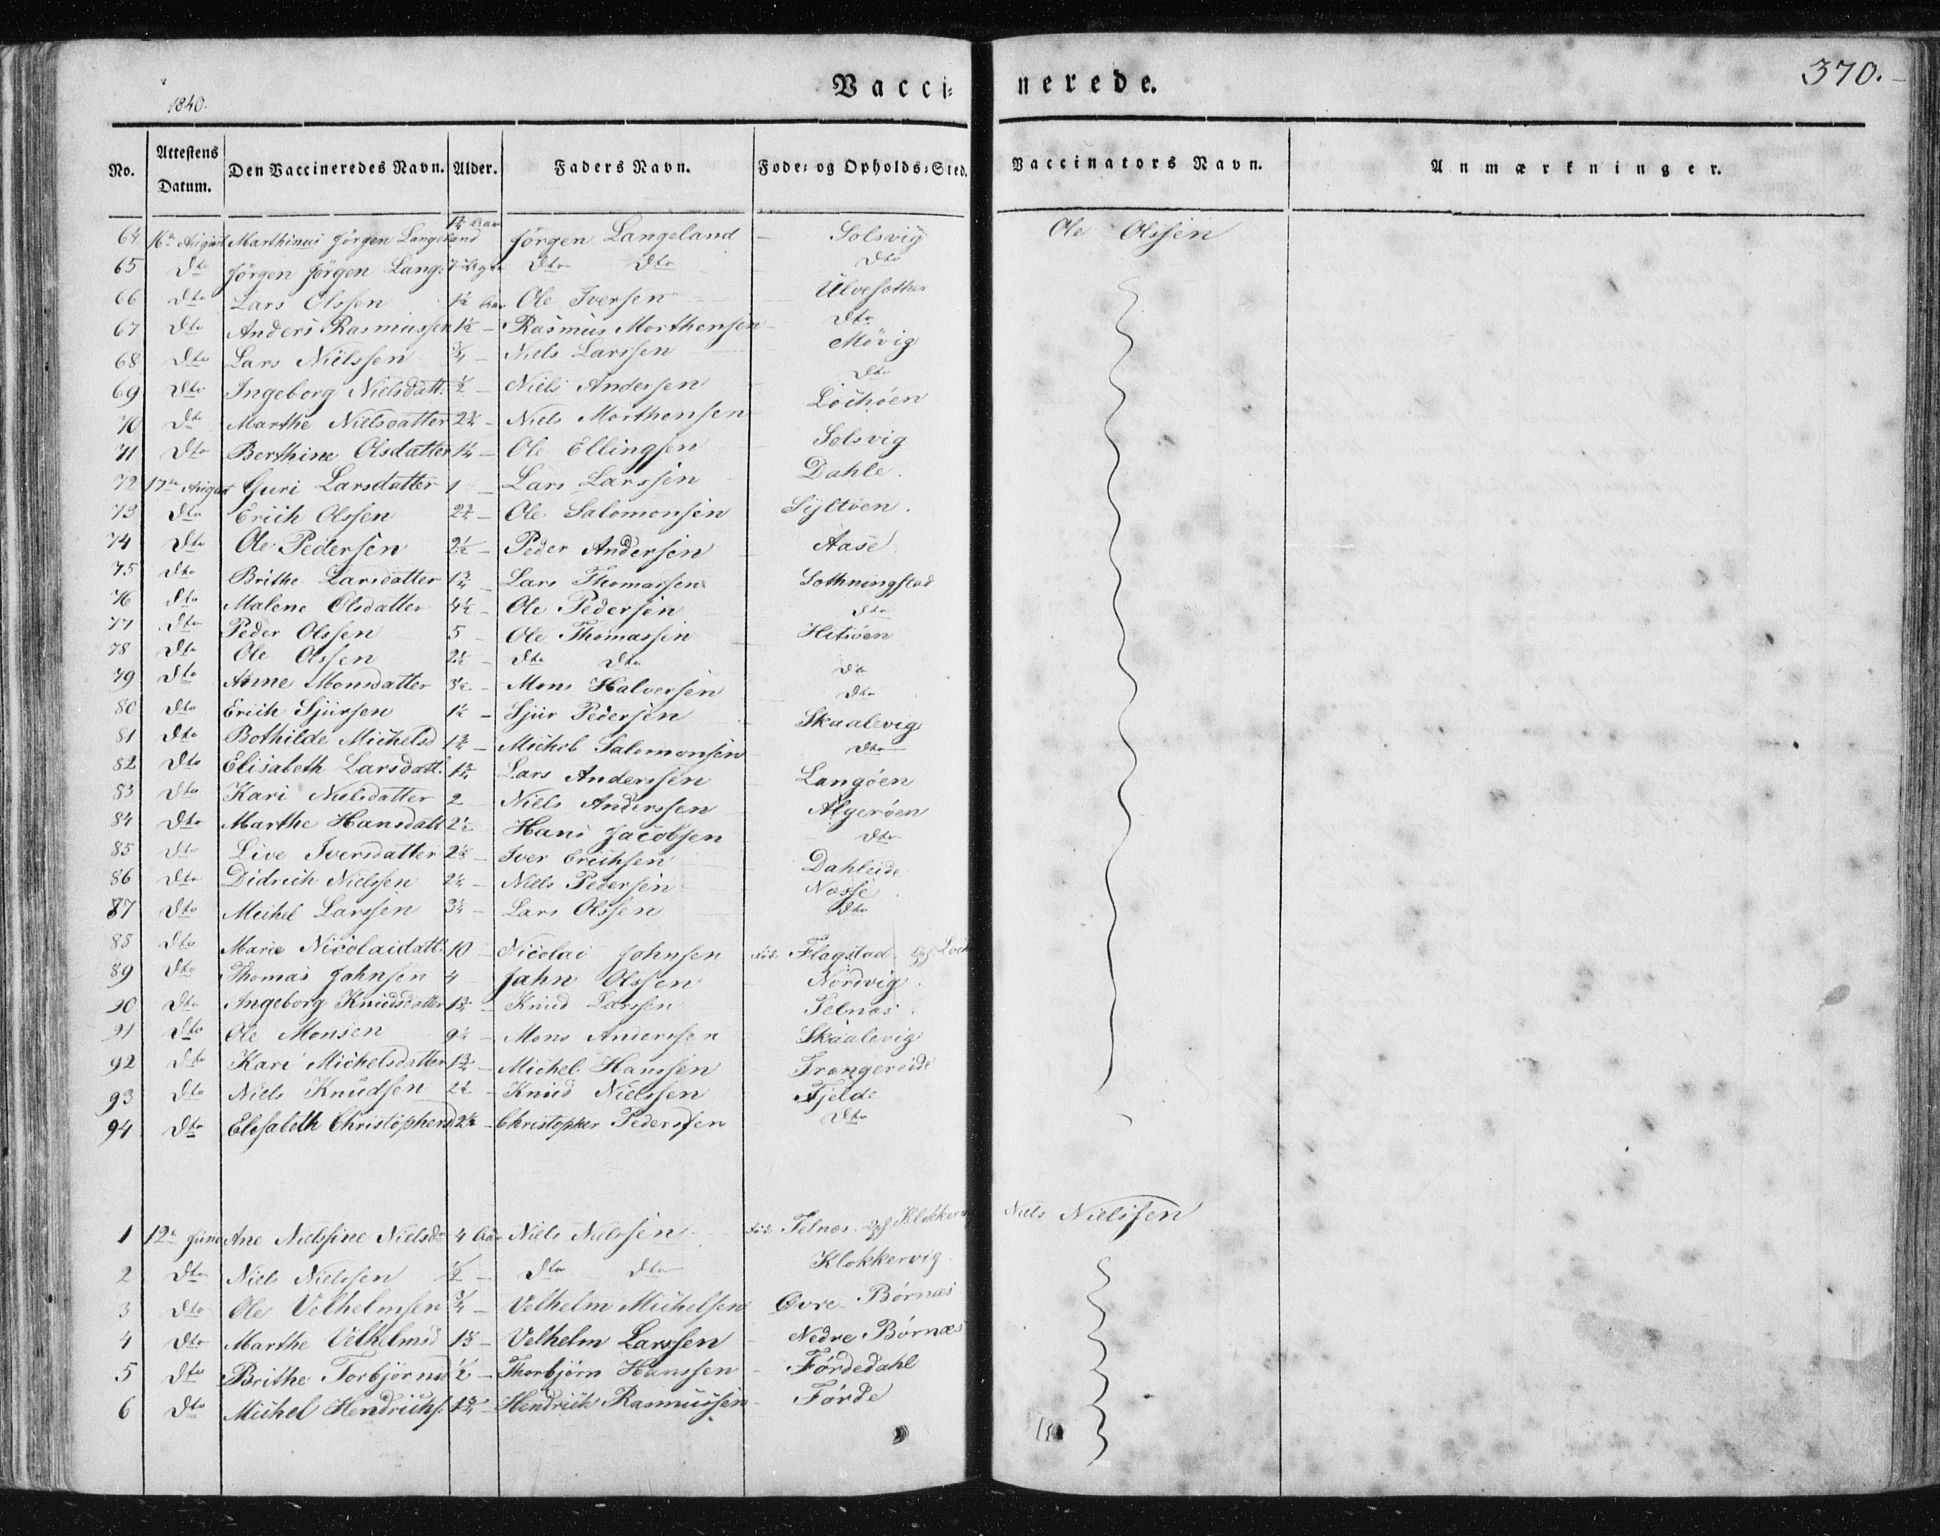 1840.
Vaccinerede.
370.
No. Attestens Datum. Den Vaccineredes Navn. Alder. Faders Navn. Føde- og Opholds-Sted. Vaccinators Navn. Anmærkninger.
64 16de August Marthinus Jörgen Langeland Aar Jörgen Langeland Solsvig Ole Olssen
65 Dto Jörgen Jörgen Lang: Dto Dto Dto
66 Dto Lars Olssen Aar Ole Iversen
67 Dto Anders Rasmussen Rasmus Morthensen Dto
68 Dto Lars Nielssen 3/4 Niels Larssen Møvig
69 Dto Ingeborg Nielsdatt. 1/2 Niels Andersen Dto
70 Dto Marthe Nielsdatter Niels Morthensen
71 Dto Berthine Olsdatter Ole Ellingsen Solsvig
72 17de August Guri Larsdatter 1 Lars Larssen Dahle.
73 Dto Erich Olssen Ole Salomonsen Syltöen.
74 Dto Ole Pedersen 2½ Peder Andersen Aase.
75 Dto Brithe Larsdatter 1¾ Lars Thomassen Sothningstad
76 Dto Malene Olsdatter 4½ Ole Pedersen Dto
77 Dto Peder Olssen 5 Ole Thomassen Hitsöen
78 Dto Ole Olssen Dto Dto Dto
79 Dto Anne Monsdatter Mons Halversen Dto
80 Dto Erich Sjursen Sjur Pedersen Skaalevig
81 Dto Bothilde Michelsd 1¾ Michel Salomonsen Dto
82 Dto Elisabeth Larsdatt. 1¾ Lars Anderssen Langöen
83 Dto Kari Nielsdatter 2 Niels Anderssen Algeröen
84 Dto Marthe Hansdatt 2½ Hans Jacobsen Dto
85 Dto Live Iversdatter Iver Erichsen Dahleide
86 Dto Didrich Nielssen Niels Pedersen Næsse
87 Dto Michel Larssen Lars Olssen Dto
88 Dto Marie Nicolaidatt. 10 Nicolai Johnsen Flagstad
89 Dto Thomas Johnsen 4 John Olssen Nordvig.
90 Dto Angeborg Knudsdatter Knud Larssen Telnæs.
91 Dto Ole Monsen Mons Anderssen Skaalevig
92 Dto Kari Michelsdatter 1¾ Michel Hanssen Trangereide
93 Dto Niels Knudsen Knud Nielssen Fjelde
94 Dto Elesabeth Christophersd Christopher Pederssen Dto
1 12te Juni Ane Nielsine Nielsd 4 Aar Niels Nielssen Telnæs. Klokkervig Niels Nielssen
2 Dto Niels Nielssen 1/2 Dto Dto Klokkervig.
3 Dto Ole Velhelmsen 3/4 Velhelm Michelsen Øvre Børnæs
4 Dto Marthe Velhelmsd Velhelm Larssen Nedre Børnæs
5 Dto Brithe Torbjørnsd 1/2 Thorbjørn Hanssen Fördedahl
6 Dto Michel Hendrichs. Hendrich Rasmussen Førde